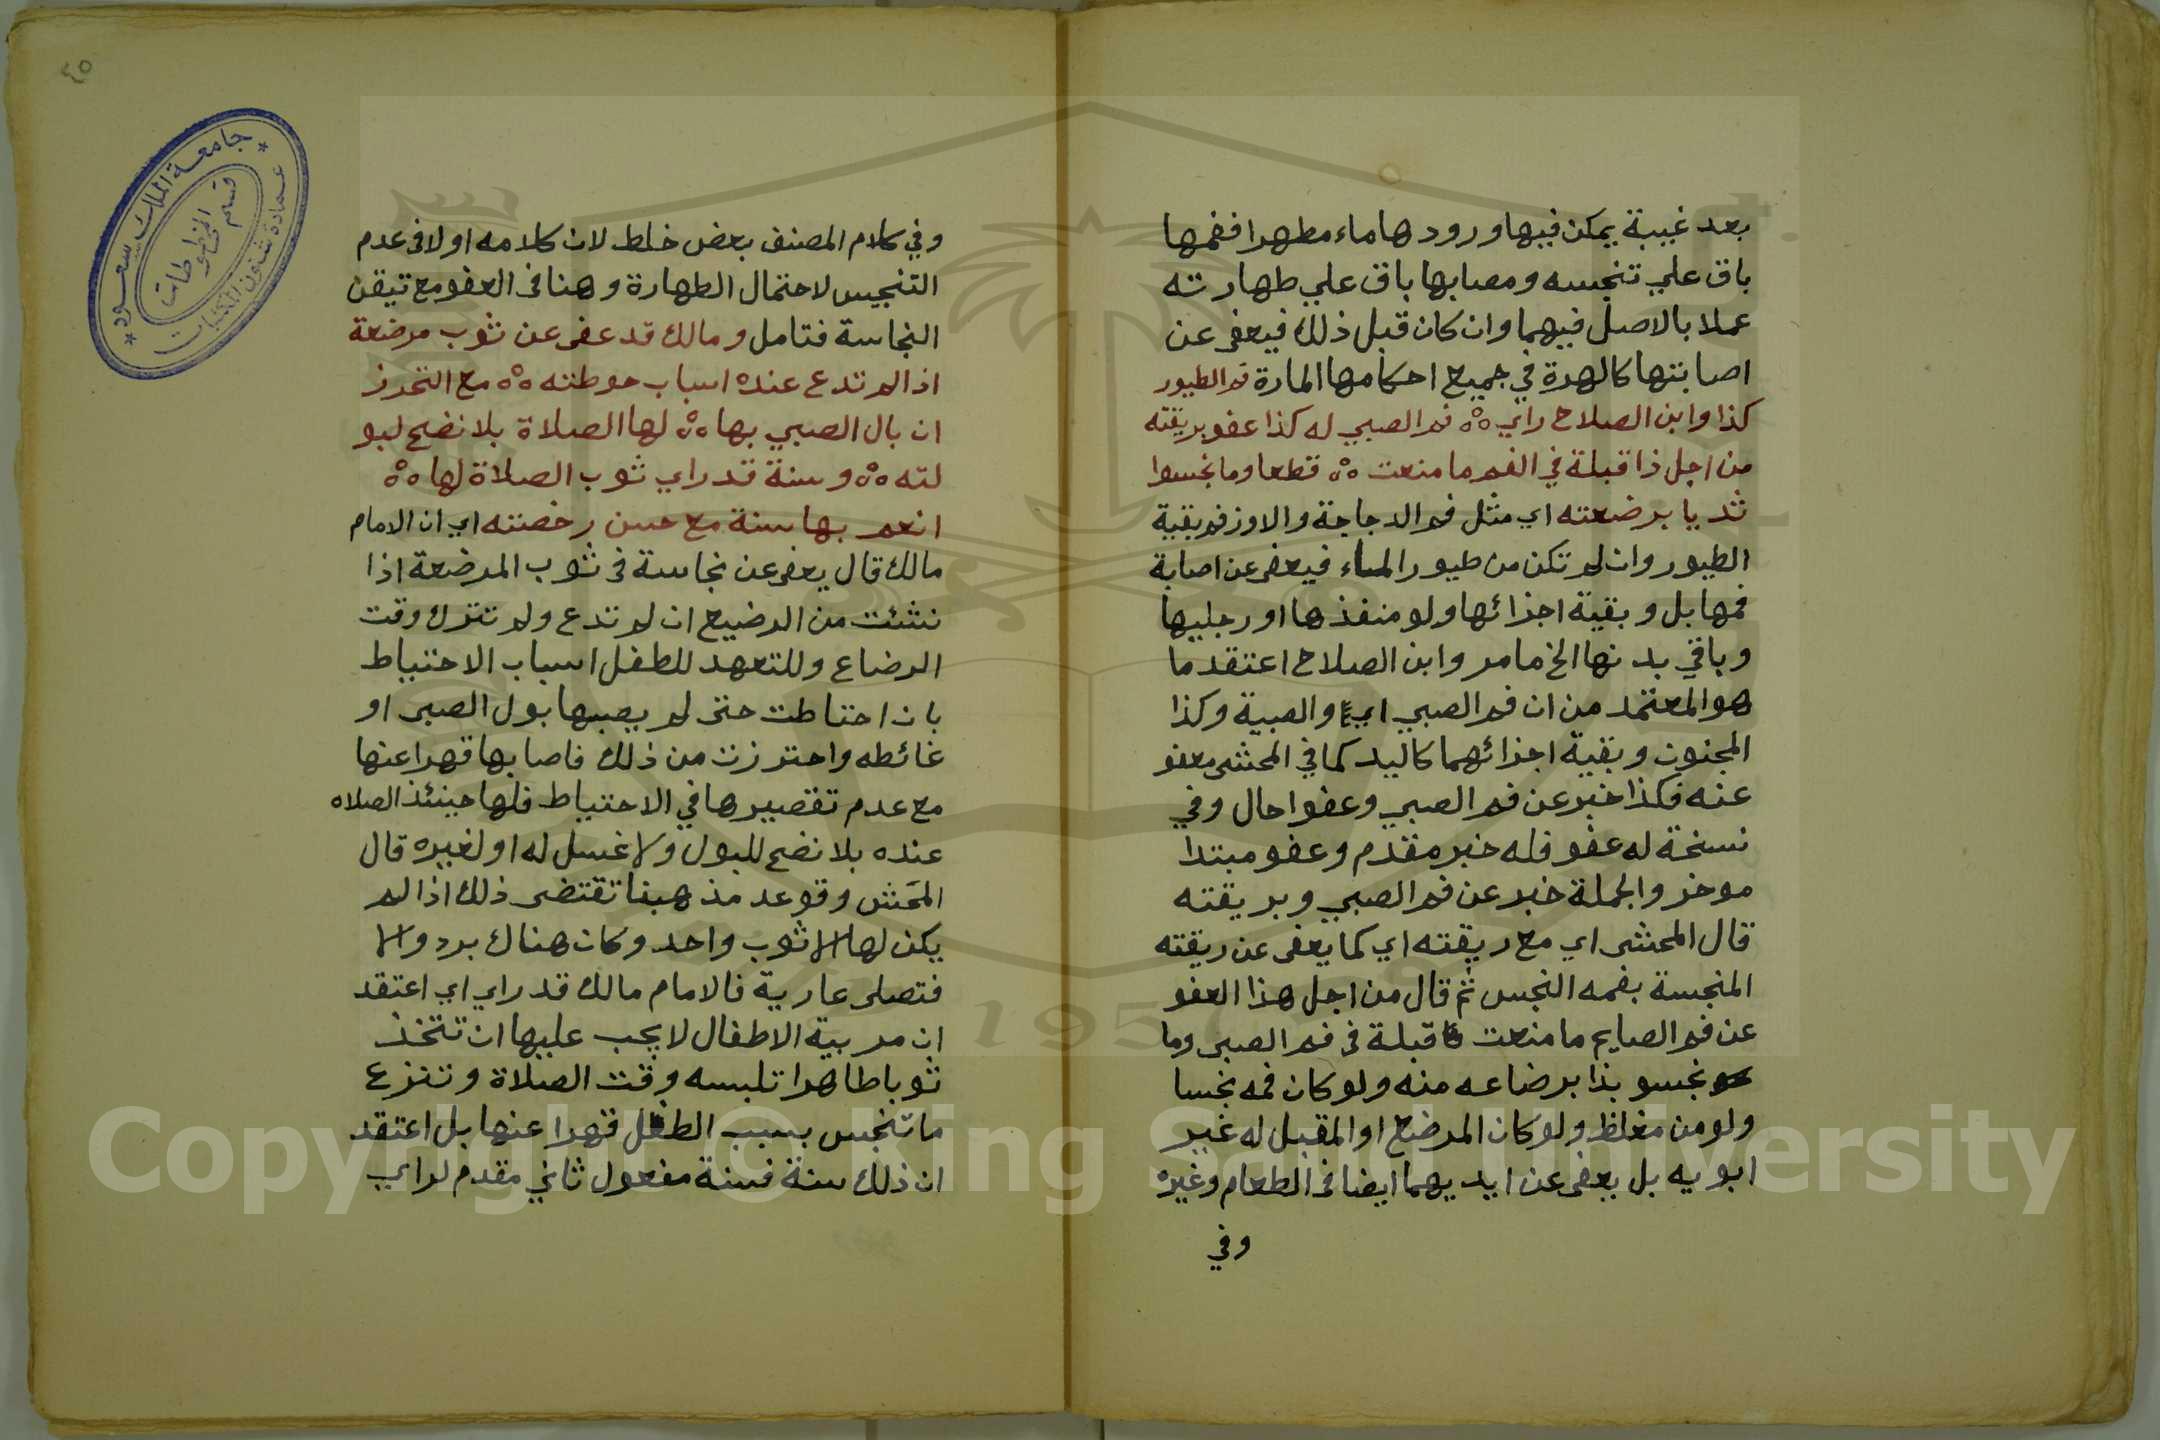 بعد غيبة يمكن فيها ورودها ماء مطهرا ففمها
باق علي تنجسه ومصابها باق علي طهارته
عملا بالاصل فيهما وان كان قبل ذلك فيعفى عن
اصابتها كالهرة في جميع احكامها المارة فم الطيور
كذا وابن الصلاح راي ٥٥ فم الصبي له كذا عفو بريقته
من اجل ذا قبلة في الفم ما منعت ٥٥ قطعا وما نجسوا
ثديا برضعته اي مثل فم الدجاجة والاوز فم بقية
الطيور وان لم تكن من طيور الماء فيعفى عن اصابة
فمها بل وبقية اجزائها ولو منفذها او رجليها
وباقي بدنها الخ ما مر وابن الصلاح اعتقد ما
هو المعتمد من ان فم الصبي اي والصبية وكذا
المجنون وبقية اجزائهما كاليد كما في المحشى معفو
عنه فكذا خبر عن فم الصبي وعفوا حال وفي
نسخة له عفو فله خبر مقدم وعفو مبتدا
موخر والجملة خبر عن فم الصبي وبريقته
قال المحشى اي مع ريقته اي كما يعفى عن ريقته
المنجسة بفمه النجس ثم قال من اجل هذا العفو
عن فم الصايم ما منعت قبلة فى فم الصبى وما
نجسو بذا برضاعه منه ولو كان فمه نجسا
ولو من مغلظ ولو كان المرضع او المقبل له غير
ابويه بل يعفى عن ايديهما ايضا فى الطعام وغيره
وفي
٤٥
جامعة الملك سعود
قسم المخطوطات
عمادة شئون المكتبات
وفي كلام المصنف بعض خلط لان كلامه اولا فى عدم
التنجيس لاحتمال الطهارة وهنا فى العفو مع تيقن
النجاسة فتامل ومالك قد عفى عن ثوب مرضعة
اذا لم تدع عنده اسباب حوطته ٥٥ مع التحرز
ان بال الصبي بها ٥٥ لها الصلاة بلا نضح لبو
لته ٥٥ وسنة قد راي ثوب الصلاة لها ٥٥
انعم بها سنة مع حسن رخصته اي ان الامام
مالك قال يعفى عن نجاسة فى ثوب المرضعة اذا
نشئت من الرضيع ان لم تدع ولم تترك وقت
الرضاع وللتعهد للطفل اسباب الاحتياط
بان احتاطت حتى لم يصبها بول الصبى او
غائطه واحترزت من ذلك فاصابها قهرا عنها
مع عدم تقصيرها في الاحتياط فلها حينئذ الصلاه
عنده بلا نضح للبول ولا غسل له او لغيره قال
المحش وقوعد مذهبنا تقتضى ذلك اذا لم
يكن لها الا ثوب واحد وكان هناك برد والا
فتصلى عارية فالامام مالك قد راي اي اعتقد
ان مربية الاطفال لا يجب عليها ان تتخذ
ثوبا طاهرا تلبسه وقت الصلاة وتنزع
ما تنجس بسبب الطفل قهرا عنها بل اعتقد
ان ذلك سنة فسنة مفعول ثاني مقدم لراي
1957
Copyright © King Saud University